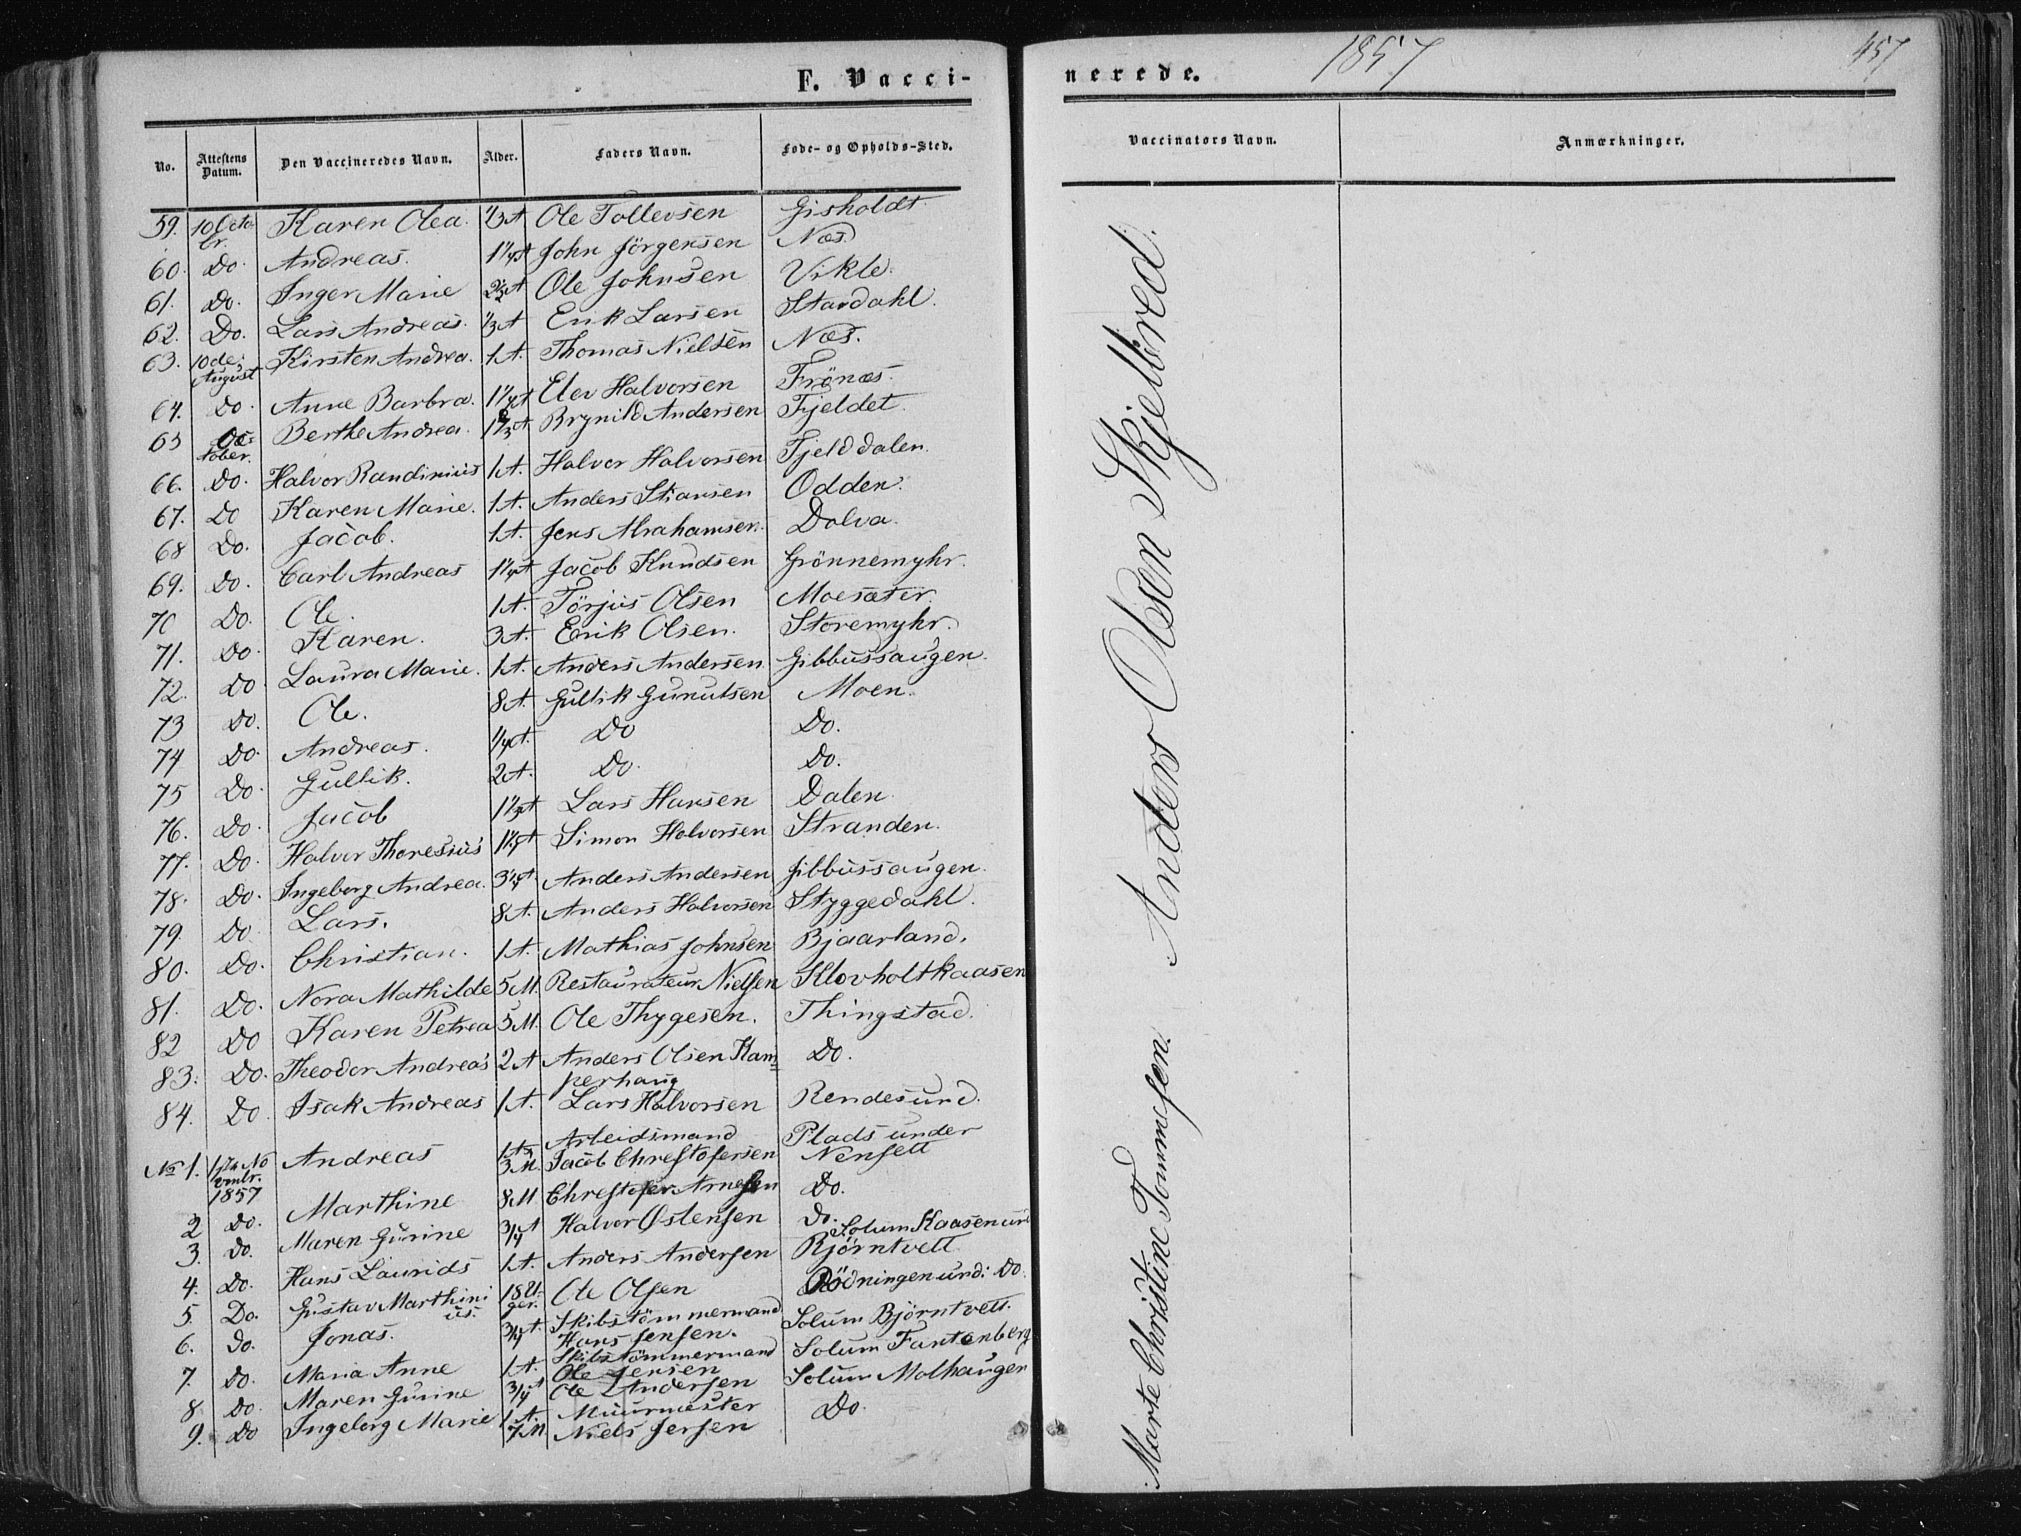 F. Vacci-
nerede. 1857 457
No. Attestens Datum. Den Vaccineredes Navn. Alder. Faders Navn. Føde- og Opholds-Sted. Vaccinators Navn. Anmærkninger.
59. 10 Octobr. Karen Olea. 1/3 A Ole Tollevsen Gisholdt
60. Do. Andreas. 1 1/4 A John Jörgensen Næs.
61. Do. Inger Marie 2 1/2 A Ole Johnsen Vikle.
62. Do. Lars Andreas. 1/3 A Erik Larsen Stavdahl.
63. 10de August Kirsten Andrea. 1 A. Thomas Nielsen Næs.
64. Do. Anne Barbra. 1 1/4 A Elev Halvorsen Frönæs.
65 October. Berthe Andrea. Brynild Andersen Fjeldet.
66. Do. Halvor Randinius 1 A. Halvor Halvorsen Fjelddalen.
67. Do Karen Marie. 1 A. Anders Stiansen Odden.
68 Do. Jacob. 1 A. Jens Abrahamsen. Dolva.
69. Do. Carl Andreas 1 1/4 A Jacob Knudsen Grönnemyhr.
70 Do. Ole. 1 A. Törjus Olsen Moesæter.
71. Do. Karen. 3 A. Erik Olsen. Storemyhr.
72. Do. Laura Marie. 1 A. Anders Andersen Gibbussaugen.
73 Do. Ole. 8 A. Gullik Gunutsen Moen.
74 Do. Andreas. 1/4 A. Do Do.
75 Do. Gullik. 2 A. Do. Do.
76. Do. Jacob 1 1/2 A Lars Hansen Dalen.
77. Do. Halvor Thoresius Simon Halvorsen Stranden.
78. Do. Ingeborg Andrea. 3 1/4 A. Anders Andersen Gibbussaugen.
79. Do Lars. 8 A. Anders Halvorsen Styggedahl.
80. Do. Christian. 1 A. Mathias Johnsen Bjaarland.
81. Do. Nora Mathilde 5 M. Restaurateur Nielsen Klovholtkaasen
82 Do Karen Petrea 5 M. Ole Thygesen. Thingstad.
83. Do. Theodor Andreas 2 A Anders Olsen Kam=
perhaug Do.
84. Do. Isak Andreas 1 A. Lars Halvorsen Rendesund.
No 1. 1ste Novembr. 1857 Andreas 1 A. 3 M. Arbeidsmand Jacob Chrestofersen Plads under Nensett
2 Do. Marthine 8 M Chrestofer Arnesen Do.
3. Do. Maren Gurine 3/4 A Halvor Østensen Do.
4. Do. Hans Laurids 1 A. Anders Andersen Solum Kaasen und Bjørntvett
5. Do. Gustav Marthinius. 18 Uger. Ole Olsen Rödningen und: Do.
6. Do. Jonas. 3/4 A. Skibstömmermand Hans Jensen. Solum Bjørntvett.
7. Do. Maria Anne 1 A. Skibstömmermand Ole Jensen Solum Fantenberg
8. Do. Maren Gurine 3/4 A Ole Andersen Solum Molhaugen
9. Do Ingeborg Marie 1 A. 7 M Muurmester Niels Jersen Do.
Anders Olsen Skjelbred.
Marte Christine Tommesen.